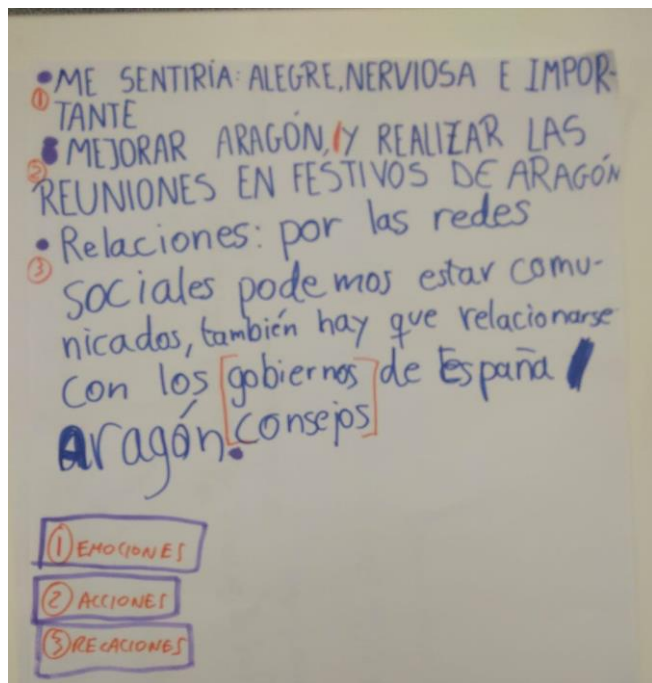 • ME SENTIRÍA: ALEGRE, NERVIOSA E IMPOR-
① TANTE
• MEJORAR ARAGÓN, Y REALIZAR LAS
② REUNIONES EN FESTIVOS DE ARAGÓN
• Relaciones: por las redes
③ sociales podemos estar comu-
nicados, también hay que relacionarse
con los [gobiernos] de España /
Aragón. [consejos]
① EMOCIONES
② ACCIONES
③ RELACIONES